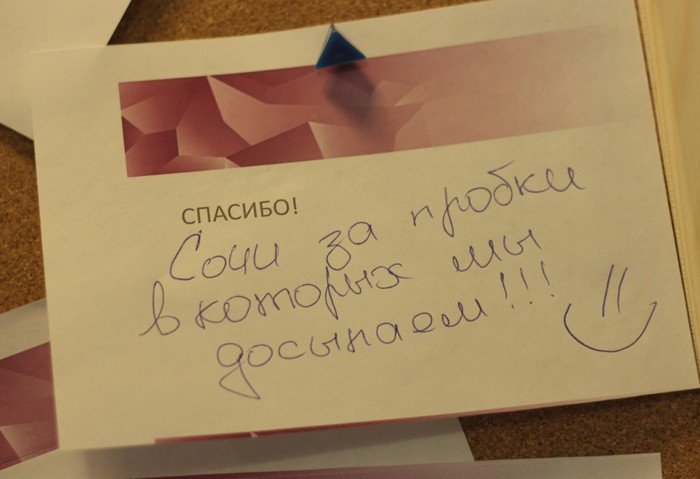 СПАСИБО!
Сочи за пробки
в которых мы
досыпаем!!!